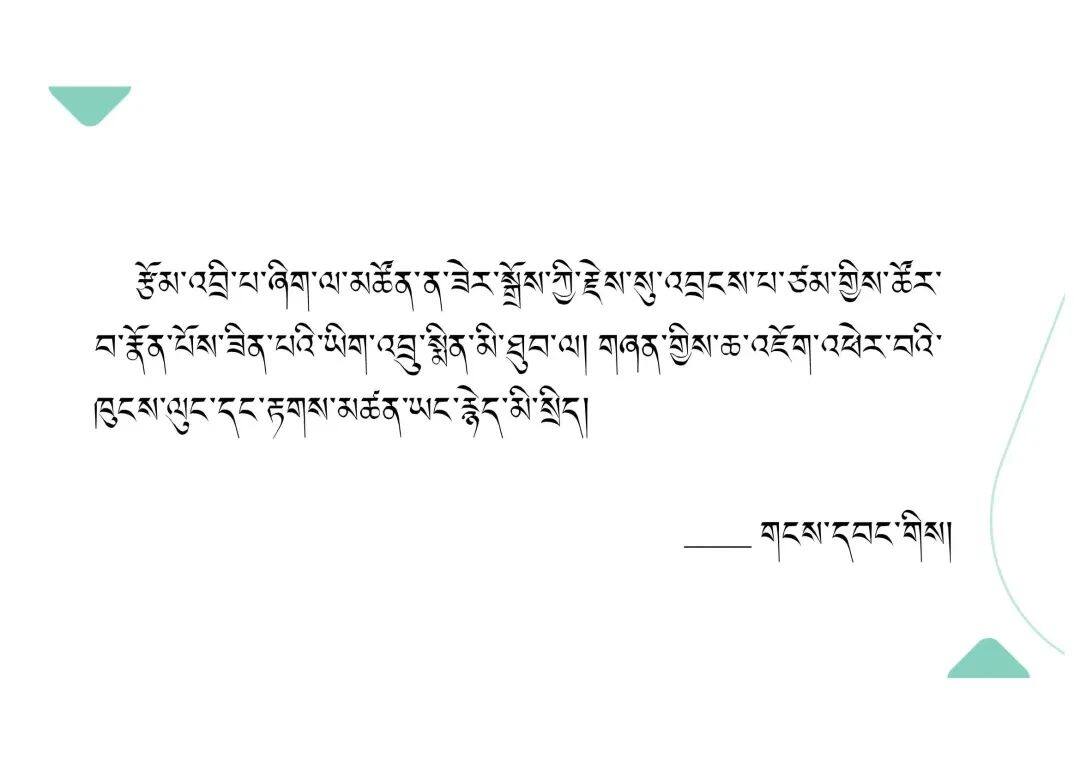 རྩོམ་འབྲི་པ་ཞིག་ལ་མཚོན་ན་ཟེར་སྒྲོས་ཀྱི་རྗེས་སུ་འབྲངས་པ་ཙམ་གྱིས་ཚོར་
བ་རྣོན་པོས་ཟིན་པའི་ཡིག་འབྲུ་སྨིན་མི་ཐུབ་ལ། གཞན་གྱིས་ཆ་འཇོག་འཕེར་བའི་
ཁུངས་ལུང་དང་རྟགས་མཚན་ཡང་རྙེད་མི་སྲིད།
____ གངས་དབང་གིས།